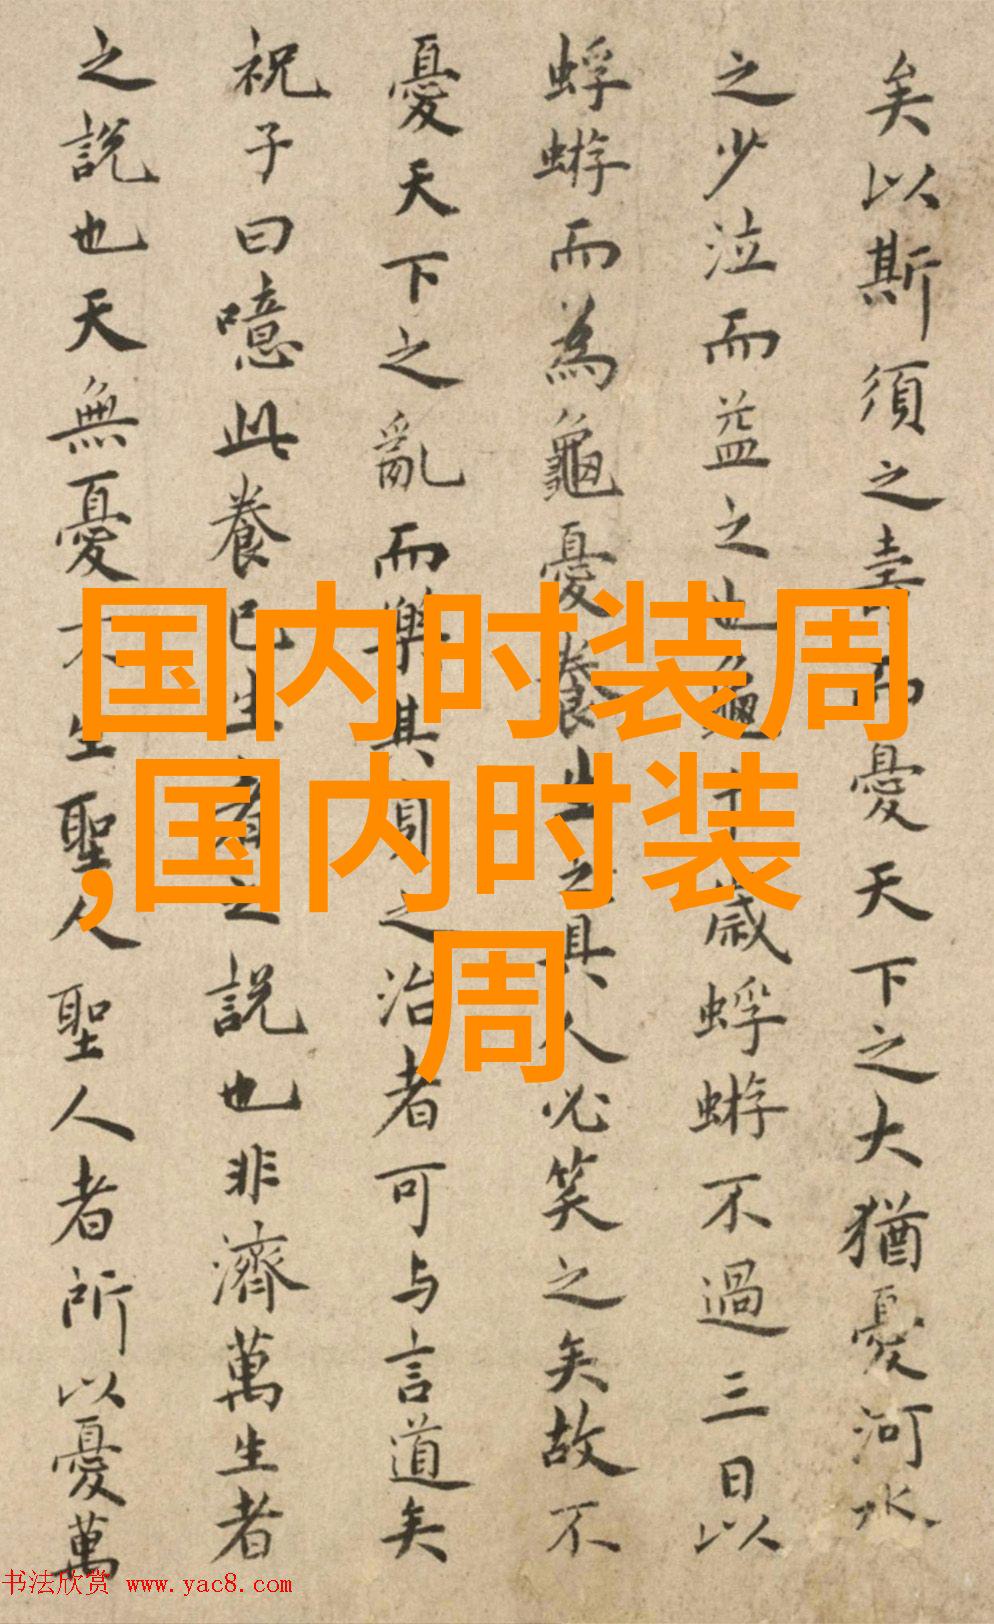 矣以斯須之壽而憂天下之大猶憂河水
之少泣而益之也龜千歲蜉蝣不過三日以
蜉蝣而為龜憂養生之具人必笑之矣故不
憂天下之亂而樂其身之治者可与言道矣
祝子曰噫此養己生者之說也非濟萬生者
之說也天無憂不生聖人聖人者所以憂萬
国内时装周
,国内时装
周
书法欣赏 www.yac8.com